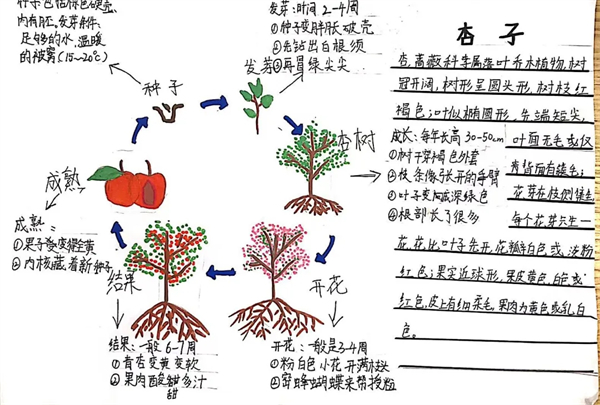 种子包括棕色硬壳,
内有胚。发芽条件:
足够的水、温暖
的被窝(15~20℃)
种子
发芽:时间 2-4周
①种子变胖胀破壳
②先钻出白根须
③再冒绿尖尖
发芽
杏树
成长:每年长高 30-50cm
①树干穿褐色外套
②枝条像张开的手臂
③叶子变成深绿色
④根部长了很多
开花
开花:一般是3-4周
①粉白色小花开满枝头
②蜜蜂蝴蝶来帮授粉
结果
结果:一般 6-7周
①青杏变黄变软
②果肉酸甜多汁
甜
成熟
成熟:
①果子变橙黄
②内核藏着新种子
杏子
杏,蔷薇科李属落叶乔木植物,树
冠开阔,树形呈圆头形,树枝红
褐色;叶似椭圆形,先端短尖,
叶面无毛或仅
背面有柔毛;
花芽在枝侧
每个花芽只生一
花,花比叶子先开,花瓣白色或淡粉
红色;果实近球形,果皮黄色、白色或
红色,皮上有细柔毛。果肉为黄色或乳白
色。